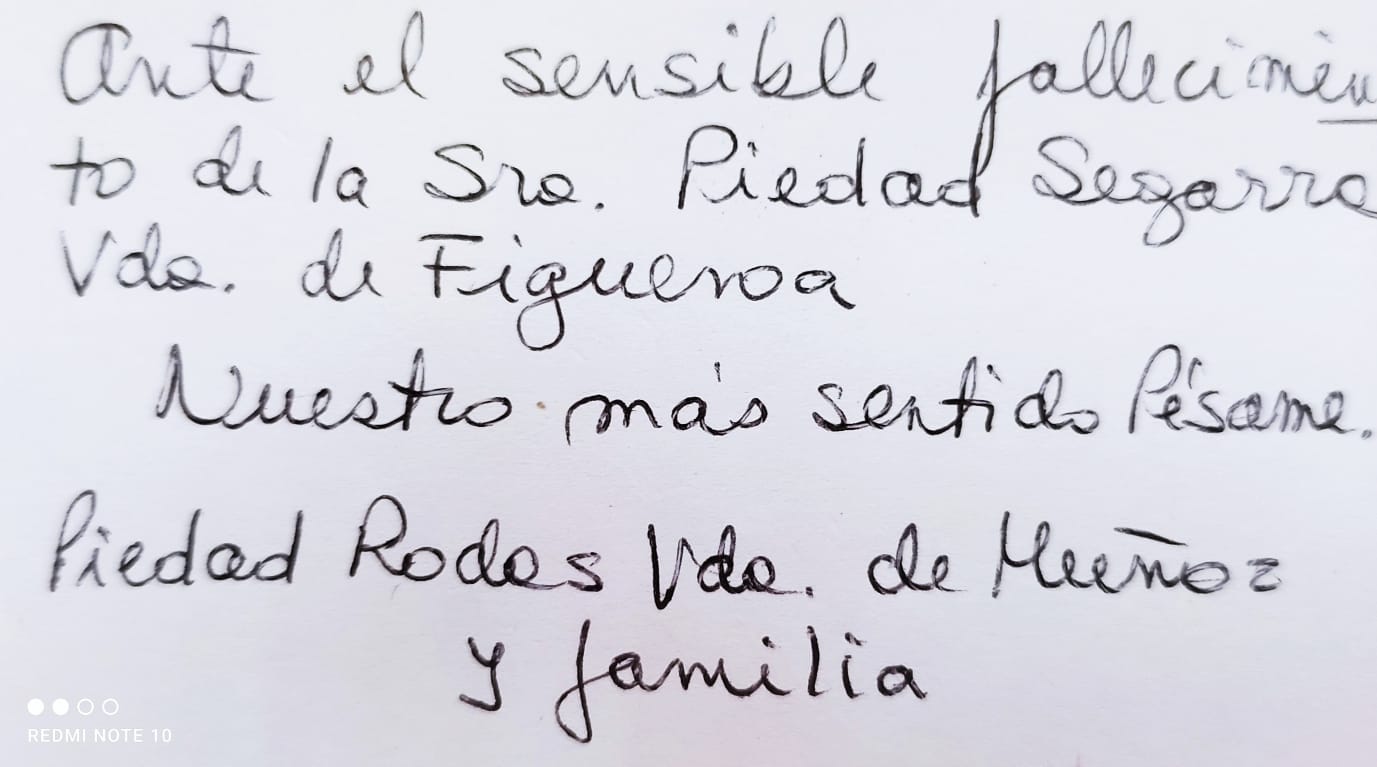 Ante el sensible fallecimien
to de la Sra. Piedad Segarra
Vda. de Figueroa
Nuestro más sentido Pésame.
Piedad Rodas Vda. de Muñoz
y familia
REDMI NOTE 10